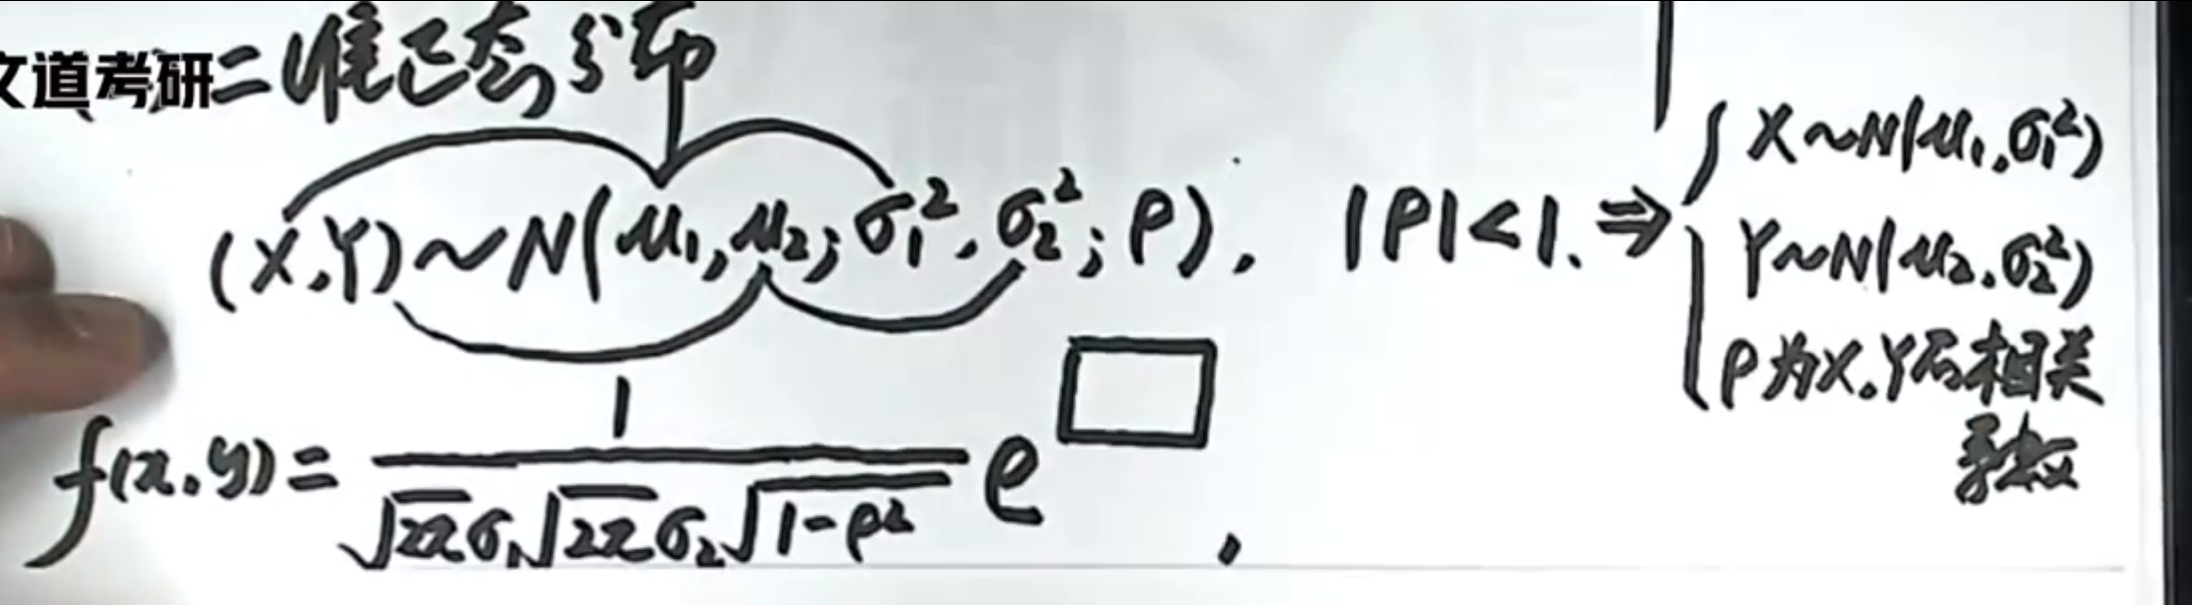 文道考研
二维正态分布
(X,Y)~N(μ₁,μ₂;σ₁²,σ₂²;ρ), |ρ|<1.⇒
{X~N(μ₁,σ₁²)
Y~N(μ₂,σ₂²)
ρ为X,Y的相关
系数
f(x,y)= 1/(√2π σ₁ √2π σ₂ √1-ρ²) e^□,